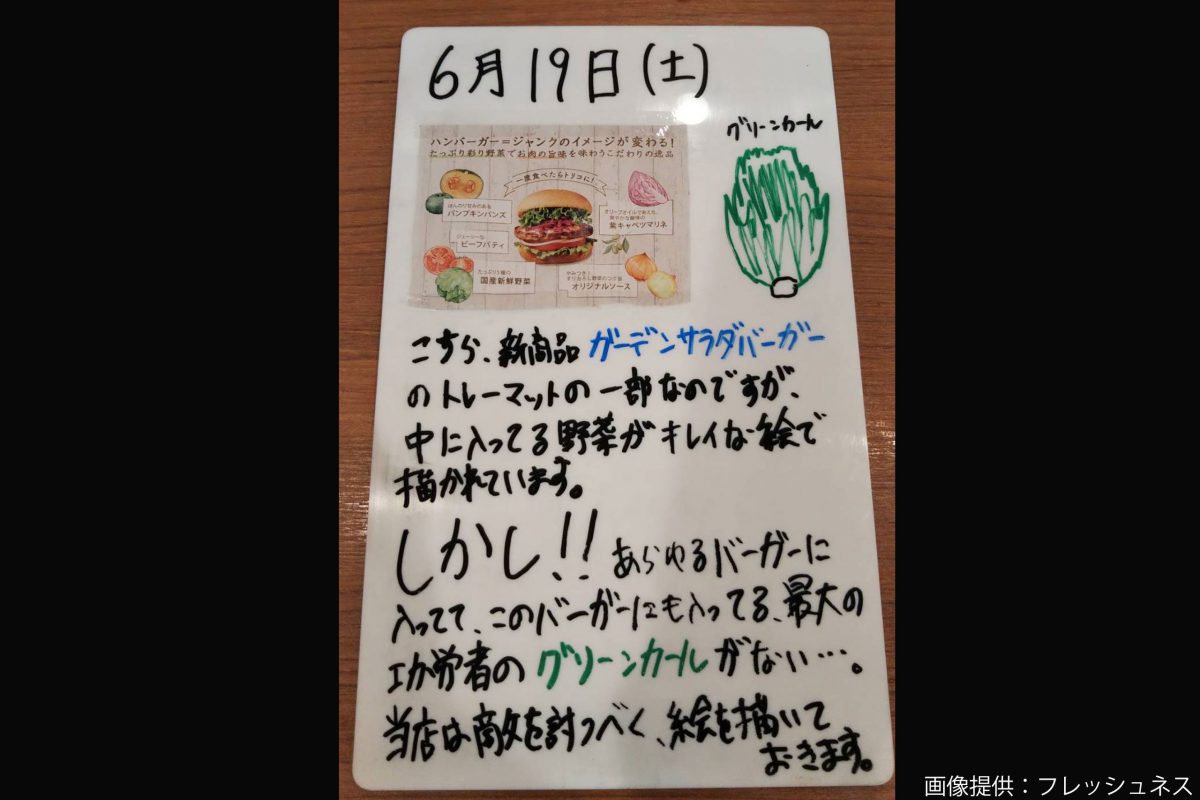 6月19日(土)
グリーンカール
ハンバーガー=ジャンクのイメージが変わる!
たっぷり彩り野菜でお肉の旨味を味わうこだわりの逸品
一度食べたらトリコに!
ほんのり甘みのある
パンプキンバンズ
オリーブオイルであえた、
爽やかな酸味の
紫キャベツマリネ
ジューシーな
ビーフパティ
たっぷり5種の
国産新鮮野菜
やみつき!
すりおろし野菜のコク旨
オリジナルソース
こちら、新商品 ガーデンサラダバーガー
のトレーマットの一部なのですが、
中に入ってる野菜がキレイな絵で
描かれています。
しかし!! あらゆるバーガーに
入ってて、このバーガーにも入ってる、最大の
功労者のグリーンカールがない…。
当店は敵を討つべく、絵を描いて
おきます。
画像提供：フレッシュネス